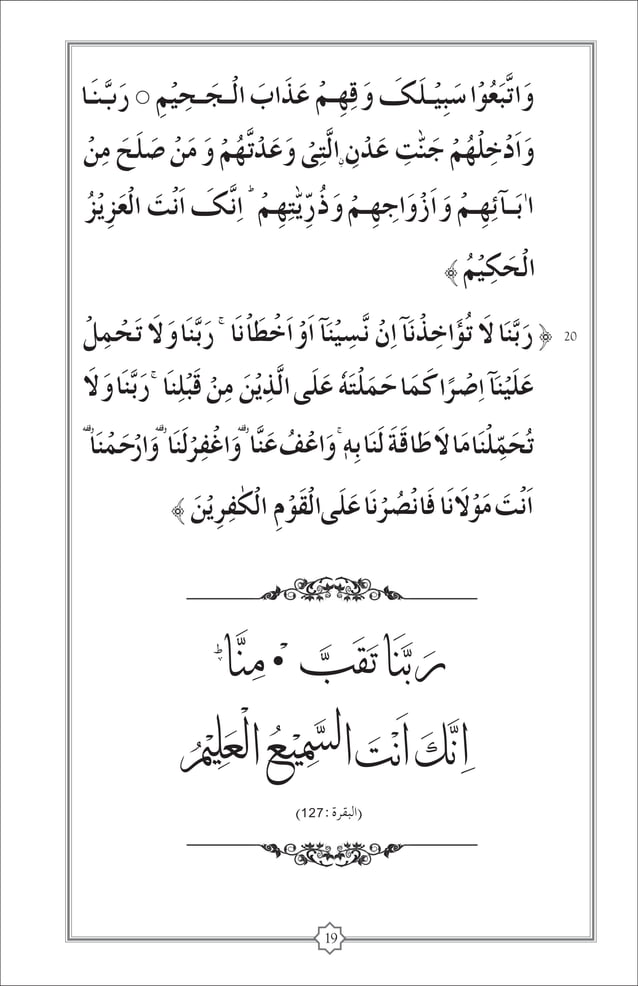 وَاتَّبَعُوۡا سَبِيۡلَـکَ وَ قِهِـمۡ عَذَابَ الۡـجَـحِيۡمِ ○ رَبَّـنَـا
وَاَدۡخِلۡهُمۡ جَنّٰتِ عَدۡنِ ۨالَّتِىۡ وَعَدْتَّهُمۡ وَ مَنۡ صَلَحَ مِنۡ
اٰبَـآئِهِـمۡ وَ اَزۡوَاجِهِـمۡ وَ ذُرِّيّٰتِهِـمۡ ؕ اِنَّکَ اَنۡتَ الۡعَزِيۡزُ
الۡحَکِيۡمُ ﴾
20 ﴿ رَبَّنَا لَا تُؤَاخِذۡنَاۤ اِنۡ نَّسِيۡنَاۤ اَوۡ اَخۡطَاۡنَا ۚ رَبَّنَا وَلَا تَحۡمِلۡ
عَلَيۡنَاۤ اِصۡرًا کَمَا حَمَلۡتَهٗ عَلَى الَّذِيۡنَ مِنۡ قَبۡلِنَا ۚ رَبَّنَا وَلَا
تُحَمِّلۡنَا مَا لَا طَاقَةَ لَنَا بِهٖ ۚ وَاعۡفُ عَنَّا ۥ وَاغۡفِرۡ لَنَا ۥ وَارۡحَمۡنَا ۥ
اَنۡتَ مَوۡلَانَا فَانۡصُرۡنَا عَلَى الۡقَوۡمِ الۡکٰفِرِيۡنَ ﴾
رَبَّنَا تَقَبَّ • مِنَّا ؕ
اِنَّكَ اَنۡتَ السَّمِيۡعُ الۡعَلِيۡمُ
(البقرة: 127)
19